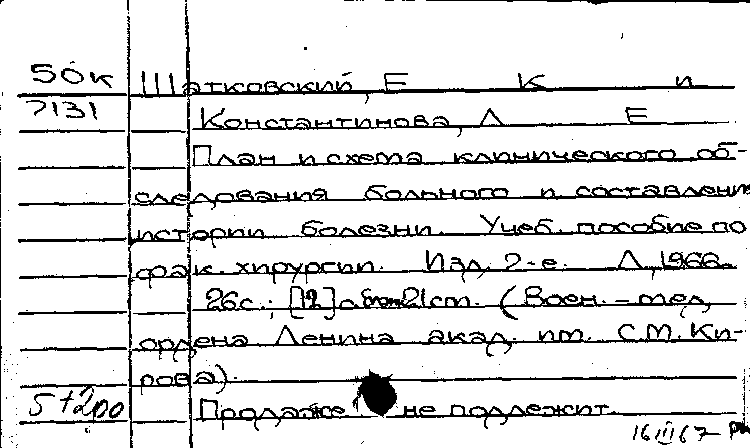 50к Шатковский, Е К и
7131 Константинова, Л Е
План и схема клинического об-
следования больного и составлени
истории болезни. Учеб. пособие по
фак. хирургии. Изд. 2-е. Л, 1966.
26с.; [12] 21cm. (Воен.-мед
ордена Ленина акад. им. С.М. Ки-
рова).
5+200 Продаже не подлежит.
16 III 67